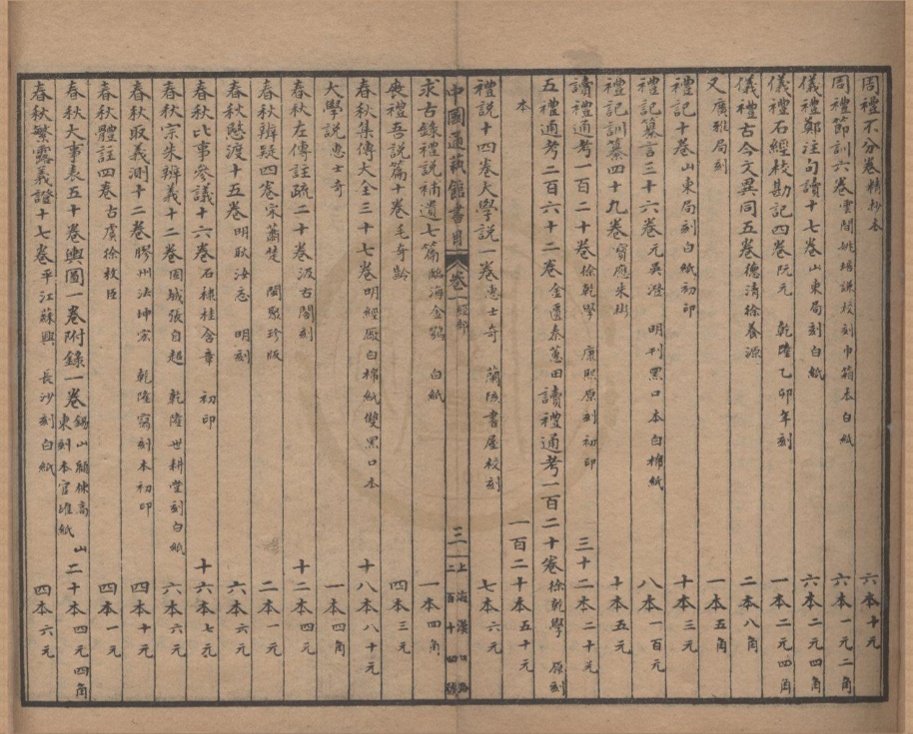 周禮不分卷精抄本 六本十元
周禮節訓六卷雲間姚培謙校刻巾箱本白紙 六本一元二角
儀禮鄭注句讀十七卷山東局刻白紙 六本二元四角
儀禮石經校勘記四卷阮元 乾隆乙卯年刻 一本二元四角
儀禮古今文異同五卷德清徐養源 二本八角
又廣雅局刻 一本五角
禮記十卷山東局刻白紙初印 十本三元
禮記纂言三十六卷元吳澄 明刊黑口本白棉紙 八本一百元
禮記訓纂四十九卷寶應朱彬 十本五元
讀禮通考一百二十卷徐乾學 康熙原刻初印 三十二本二十元
五禮通考二百六十二卷金匱秦蕙田讀禮通考一百二十卷徐乾學 原刻
本 一百二十本五十元
禮說十四卷大學說一卷惠士奇 蘭陔書屋校刻 七本六元
中國通藝館書目 卷一經部 三 上海漢口路二百十四號
求古錄禮說補遺七篇臨海金鶚 白紙 一本四角
喪禮吾說篇十卷毛奇齡 四本三元
春秋集傳大全三十七卷明經廠白棉紙雙黑口本 十八本八十元
大學說惠士奇 一本四角
春秋左傳註疏二十卷汲古閣刻 十二本四元
春秋辨疑四卷宋蕭楚 閩聚珍版 二本一元
春秋愍渡十五卷明耿汝忞 明刻 六本六元
春秋比事參議十六卷石棣桂含章 初印 十六本七元
春秋宗朱辨義十二卷固城張自超 乾隆世耕堂刻白紙 六本六元
春秋取義測十二卷膠州法坤宏 乾隆寫刻本初印 四本十元
春秋體註四卷古虞徐枚臣 四本一元
春秋大事表五十卷輿圖一卷附錄一卷錫山顧棟高 山東刻本官堆紙 二十本四元四角
春秋繁露義證十七卷平江蘇輿 長沙刻白紙 四本六元